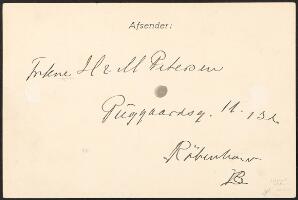 Afsender:
Frkne H & M Petersen
Puggaardsg. 11. 13 L
København
B